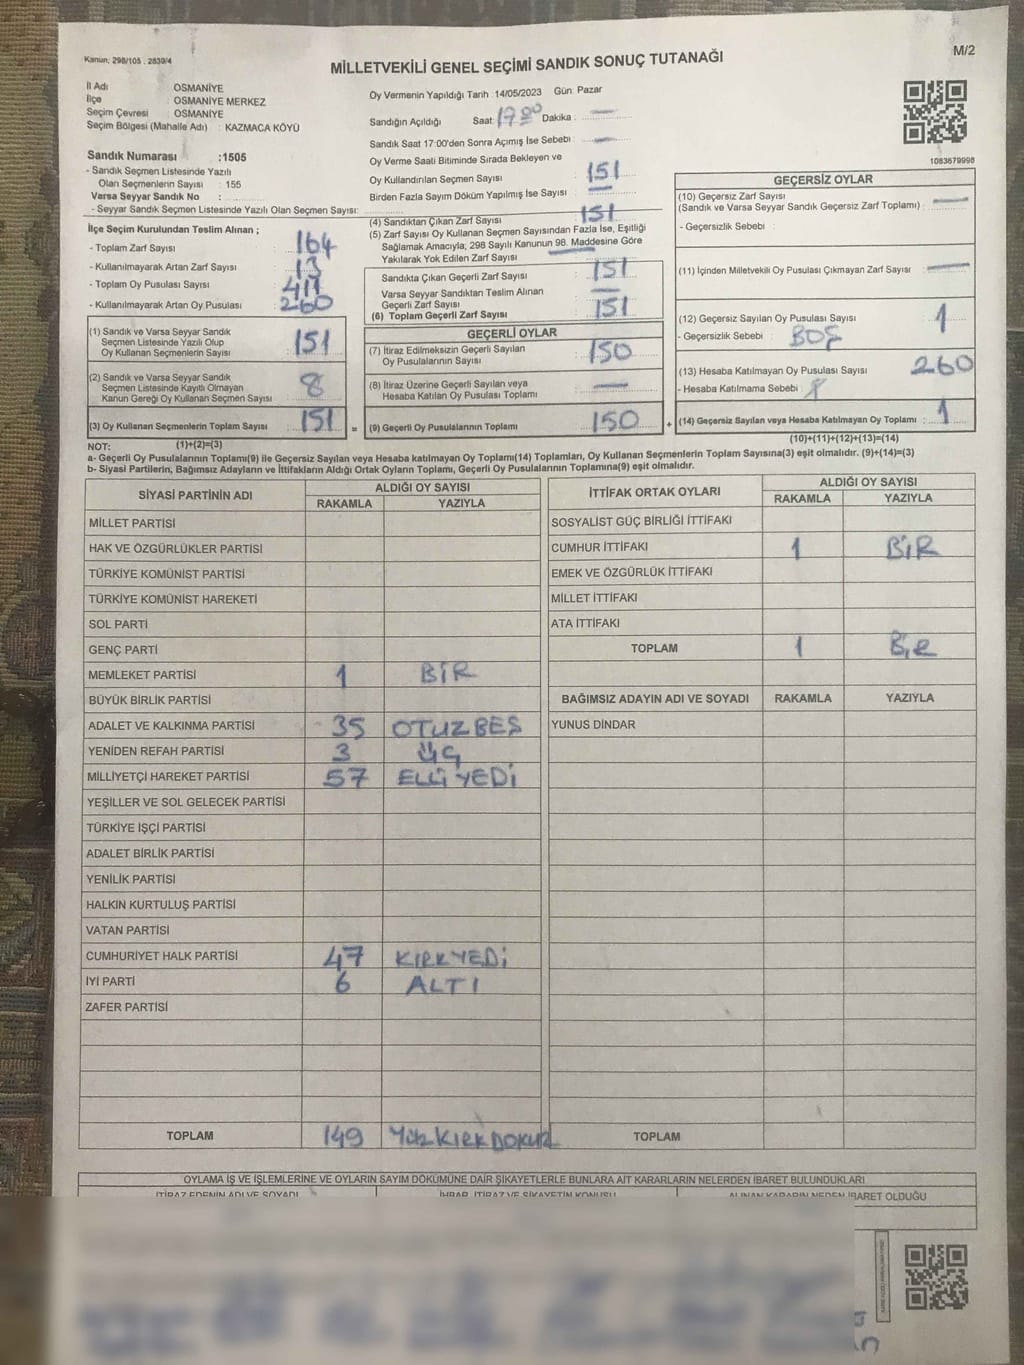 Kanun: 298/105 . 2839/4
MİLLETVEKİLİ GENEL SEÇİMİ SANDIK SONUÇ TUTANAĞI
M/2
İl Adı OSMANİYE
İlçe : OSMANİYE MERKEZ
Seçim Çevresi : OSMANİYE
Seçim Bölgesi (Mahalle Adı) : KAZMACA KÖYÜ
Sandık Numarası :1505
- Sandık Seçmen Listesinde Yazılı
Olan Seçmenlerin Sayısı : 155
Varsa Seyyar Sandık No :
- Seyyar Sandık Seçmen Listesinde Yazılı Olan Seçmen Sayısı:
İlçe Seçim Kurulundan Teslim Alınan ;
- Toplam Zarf Sayısı 164
- Kullanılmayarak Artan Zarf Sayısı 13
- Toplam Oy Pusulası Sayısı 411
- Kullanılmayarak Artan Oy Pusulası 260
(1) Sandık ve Varsa Seyyar Sandık
Seçmen Listesinde Yazılı Olup
Oy Kullanan Seçmenlerin Sayısı 151
(2) Sandık ve Varsa Seyyar Sandık
Seçmen Listesinde Kayıtlı Olmayan
Kanun Gereği Oy Kullanan Seçmen Sayısı
(3) Oy Kullanan Seçmenlerin Toplam Sayısı 151 =
(1)+(2)=(3)
Oy Vermenin Yapıldığı Tarih :14/05/2023 Gün: Pazar
Sandığın Açıldığı Saat: 17 00 Dakika : —
Sandık Saat 17:00'den Sonra Açımış İse Sebebi : —
Oy Verme Saati Bitiminde Sırada Bekleyen ve
Oy Kullandırılan Seçmen Sayısı : 151
Birden Fazla Sayım Döküm Yapılmış İse Sayısı : —
(4) Sandıktan Çıkan Zarf Sayısı 151
(5) Zarf Sayısı Oy Kullanan Seçmen Sayısından Fazla İse, Eşitliği
Sağlamak Amacıyla, 298 Sayılı Kanunun 98. Maddesine Göre
Yakılarak Yok Edilen Zarf Sayısı : —
Sandıkta Çıkan Geçerli Zarf Sayısı 151
Varsa Seyyar Sandıktan Teslim Alınan
Geçerli Zarf Sayısı —
(6) Toplam Geçerli Zarf Sayısı : 151
GEÇERLİ OYLAR
(7) İtiraz Edilmeksizin Geçerli Sayılan
Oy Pusulalarının Sayısı 150
(8) İtiraz Üzerine Geçerli Sayılan veya
Hesaba Katılan Oy Pusulası Toplamı —
(9) Geçerli Oy Pusulalarının Toplamı 150 +
1083679998
GEÇERSİZ OYLAR
(10) Geçersiz Zarf Sayısı
(Sandık ve Varsa Seyyar Sandık Geçersiz Zarf Toplamı) : —
- Geçersizlik Sebebi :
(11) İçinden Milletvekili Oy Pusulası Çıkmayan Zarf Sayısı —
(12) Geçersiz Sayılan Oy Pusulası Sayısı 1
- Geçersizlik Sebebi : BOŞ
(13) Hesaba Katılmayan Oy Pusulası Sayısı 260
- Hesaba Katılmama Sebebi :
(14) Geçersiz Sayılan veya Hesaba Katılmayan Oy Toplamı : 1
(10)+(11)+(12)+(13)=(14)
NOT:
a- Geçerli Oy Pusulalarının Toplamı(9) ile Geçersiz Sayılan veya Hesaba katılmayan Oy Toplamı(14) Toplamları, Oy Kullanan Seçmenlerin Toplam Sayısına(3) eşit olmalıdır. (9)+(14)=(3)
b- Siyasi Partilerin, Bağımsız Adayların ve İttifakların Aldığı Ortak Oyların Toplamı, Geçerli Oy Pusulalarının Toplamına(9) eşit olmalıdır.
SİYASİ PARTİNİN ADI ALDIĞI OY SAYISI
RAKAMLA YAZIYLA
MİLLET PARTİSİ
HAK VE ÖZGÜRLÜKLER PARTİSİ
TÜRKİYE KOMÜNİST PARTİSİ
TÜRKİYE KOMÜNİST HAREKETİ
SOL PARTİ
GENÇ PARTİ
MEMLEKET PARTİSİ 1 BİR
BÜYÜK BİRLİK PARTİSİ
ADALET VE KALKINMA PARTİSİ 35 OTUZBEŞ
YENİDEN REFAH PARTİSİ 3 ÜÇ
MİLLİYETÇİ HAREKET PARTİSİ 57 ELLİ YEDİ
YEŞİLLER VE SOL GELECEK PARTİSİ
TÜRKİYE İŞÇİ PARTİSİ
ADALET BİRLİK PARTİSİ
YENİLİK PARTİSİ
HALKIN KURTULUŞ PARTİSİ
VATAN PARTİSİ
CUMHURİYET HALK PARTİSİ 47 KIRKYEDİ
İYİ PARTİ 6 ALTI
ZAFER PARTİSİ
TOPLAM 149 YÜZKIRKDOKUZ
İTTİFAK ORTAK OYLARI ALDIĞI OY SAYISI
RAKAMLA YAZIYLA
SOSYALİST GÜÇ BİRLİĞİ İTTİFAKI
CUMHUR İTTİFAKI 1 BİR
EMEK VE ÖZGÜRLÜK İTTİFAKI
MİLLET İTTİFAKI
ATA İTTİFAKI
TOPLAM 1 BİR
BAĞIMSIZ ADAYIN ADI VE SOYADI RAKAMLA YAZIYLA
YUNUS DİNDAR
TOPLAM
OYLAMA İŞ VE İŞLEMLERİNE VE OYLARIN SAYIM DÖKÜMÜNE DAİR ŞİKAYETLERLE BUNLARA AİT KARARLARIN NELERDEN İBARET BULUNDUKLARI
İTİRAZ EDENİN ADI VE SOYADI İHBAR, İTİRAZ VE ŞİKAYETİN KONUSU ALINAN KARARIN NEDEN İBARET OLDUĞU